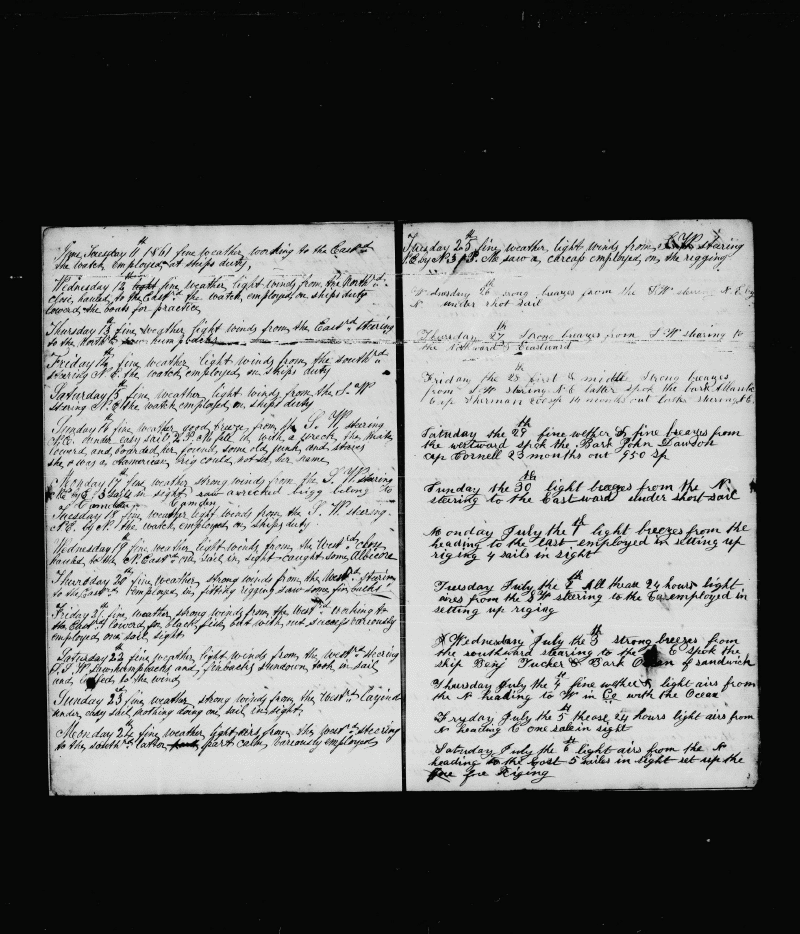 June, Tuesday 11th 1861 fine weather working to the Eastrd
the watch employed at ships duty,
Wednesday 12th light fine weather light winds from the Northrd
close, hauled to the Eastrd the watch employed on ships duty
lowerd, the boats for practice
Thursday 13 fine weather light winds from the Eastrd steering
to the Northrd saw humpbacks
Friday 14 fine weather, light winds from the southrd
stearing N.E. the watch employed on ships duty
Saturday 15th fine weather light winds from the S. W
stering N. E the watch employed on ships duty
Sunday 16 fine weather good breeze from the S. W stering
N.E. under easy sail, 2 P.M fell in with a wreck, the Mate
lowerd, and boarded her found, some old junk, and staves
she was a American brig could, not see her name
Monday 17th fine weather strong winds from the S. W stering
N.E by E 3 sails in sight saw a wrecked brigg belong to
Camden Camden
Tuesday 18 fine weather light winds from the S. W stearing
N.E. by N. the watch employed on ships duty.
Wednesday 19th fine weather light winds from the Westrd close
hauled to the N. Eastrd one sail in sight caught some Albicore
Thursday 20th fine weather strong winds from the Westrd stearing
to the Eastrd employed in fitting rigging saw some fin backs
Friday 21st fine weather strong winds from the Westrd working to
the Eastrd lowerd for blackfish but with not success variously
employed one sail sight
Saturday 22 fine weather light winds from the westrd stearing
S.S.W. saw humpbacks and finbacks sundown took in sail
and luffed to the wind
Sunday 23rd fine weather strong winds from the Westrd laying
under easy sail nothing doing one sail in sight.
Monday 24 fine weather light airs from the westrd steering
to the southrd latter part calm, variously employed
Tuesday 25th fine weather, light winds from S. W stearing
N.E by N. 3 P. M. saw a, employed on the rigging
Wednesday 26th strong breazes from the S.W stering N. E by
N under shot sail
Thursday 27th Strong breazes from S. W stearing to
the N.Ward & Eastward
Friday the 28 first & middle strong breazes
from S. W stering N. E latter spok the bark Atlantic
Cap Sherman 200 sp 14 months out both stering N. E.
Saturday the 29th fine wether & fine breazes from
the westward spok the Bark John Dawson
cap Cornell 23 months out 950 sp
Sunday the 30th light breezes from the N.
stering to the East ward under short sail
Monday July the 1st light breezes from the
heading to the East employed in setting up
riging 4 sails in sight
Tuesday July the 2 All thease 24 hours light
aires from the S W steering to the E employed in
setting up riging
Wednesday July the 3th strong breezes from
the southward stearing to the E spok the
ship Benj Tucker & Bark Ocean of Sandwich
Thursday July the 4th fine wether & light airs from
the N heading to W in Co with the Ocean
Fryday July the 5th thease 24 hours light airs from
N heading E one sale in sight
Saturday July the 6th light airs from the N
heading to the East 5 sailes in light set up the
fore Riging